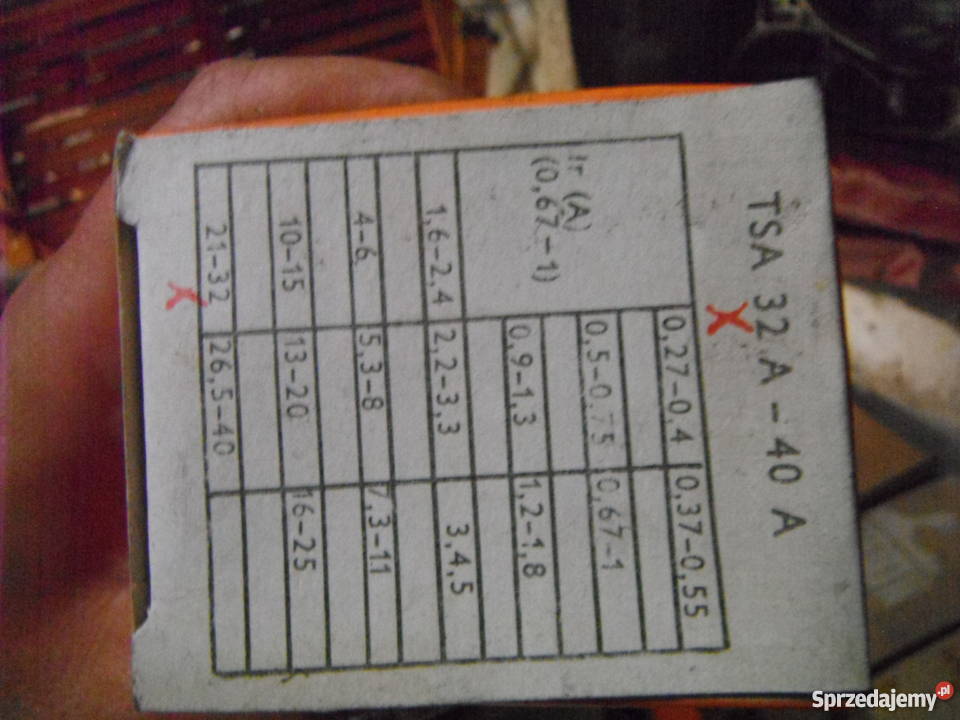 TSA 32 A - 40 A
X
Ir (A) 0,27-0,4 0,37-0,55
(0,67-1) 0,5-0,75 0,67-1
0,9-1,3 1,2-1,8
1,6-2,4 2,2-3,3 3,4,5
4-6 5,3-8 7,3-11
10-15 13-20 16-25
21-32 26,5-40
X
Sprzedajemy.pl